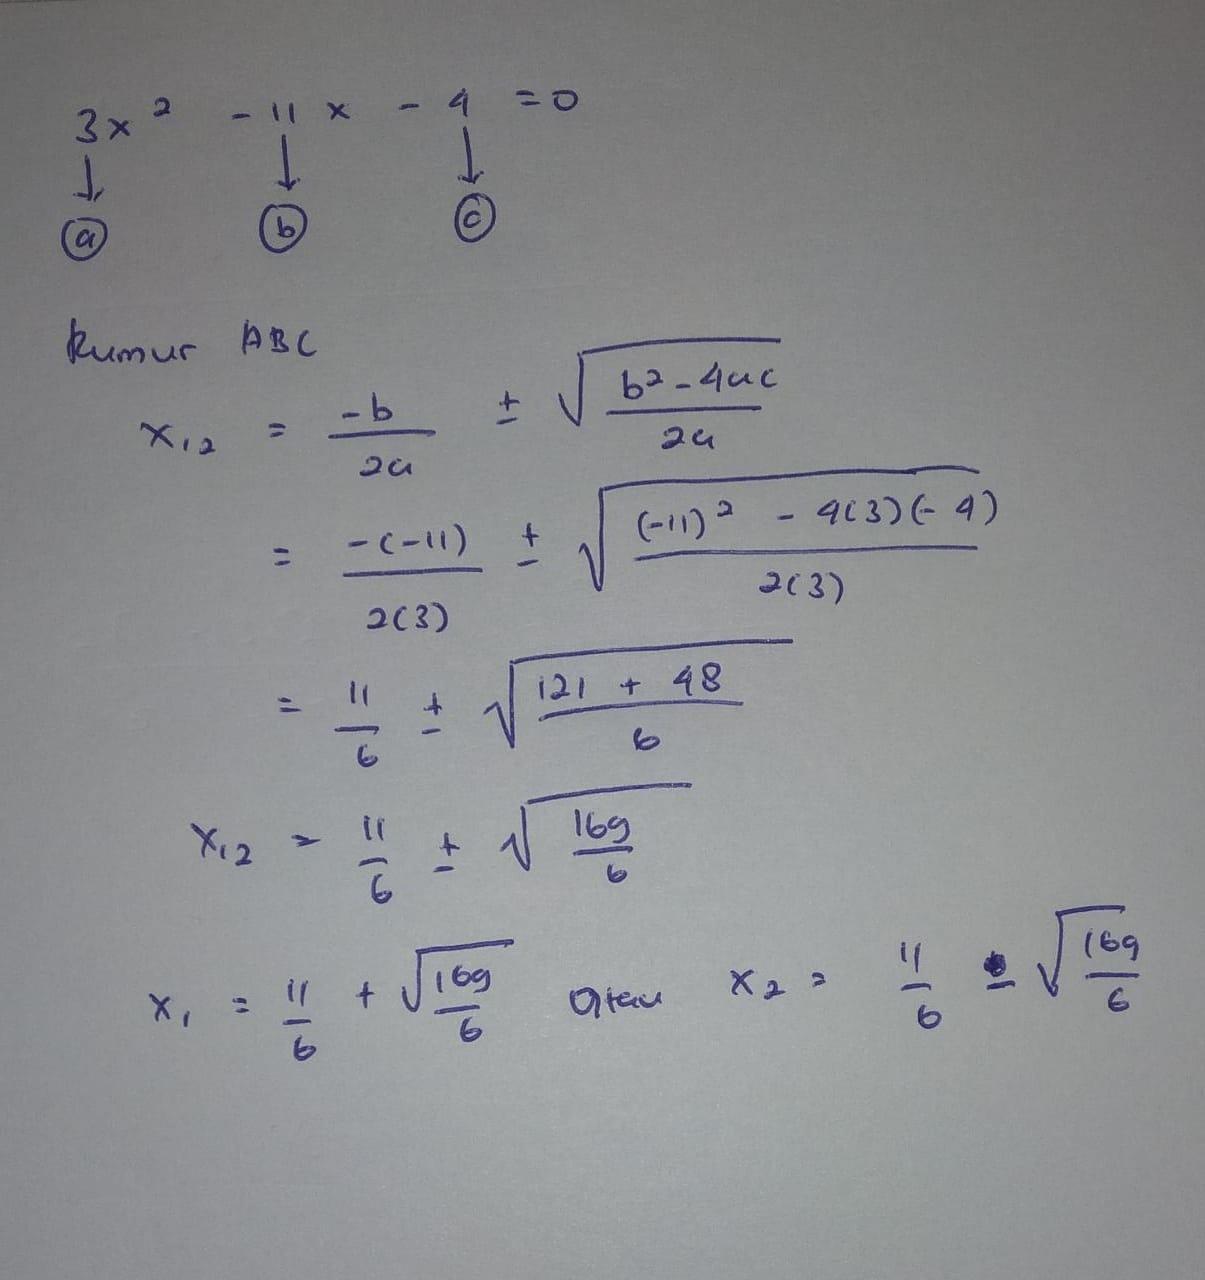 3x² - 11x - 4 = 0
↓ ↓ ↓
ⓐ ⓑ ⓒ
Rumur ABC
x₁₂ = -b/2a ± √((b² - 4ac)/2a)
= -(-11)/2(3) ± √(((-11)² - 4(3)(-4))/2(3))
= 11/6 ± √((121 + 48)/6)
x₁₂ = 11/6 ± √(169/6)
x₁ = 11/6 + √(169/6) atau x₂ = 11/6 - √(169/6)